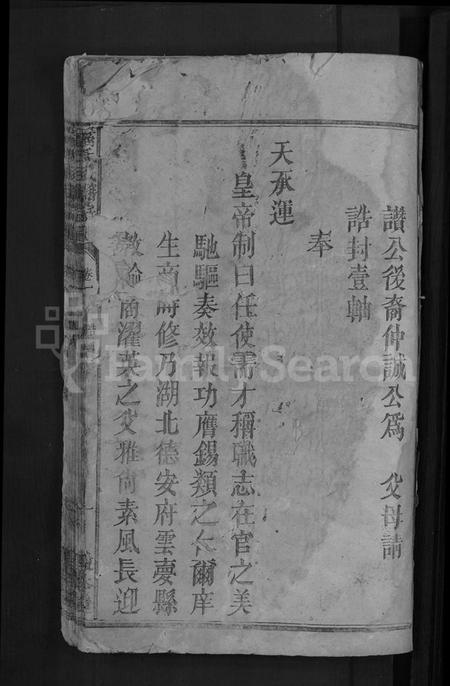 讚公後裔仲誠公爲 父母請
誥封壹軸
奉
天承運
皇帝制曰任使需才稱職志在官之美
馳驅奏效報功膺錫類之仁爾庠
生 修乃湖北德安府雲夢縣
教諭 濯英之父雅尚素風長迎
卷一
FamilySearch